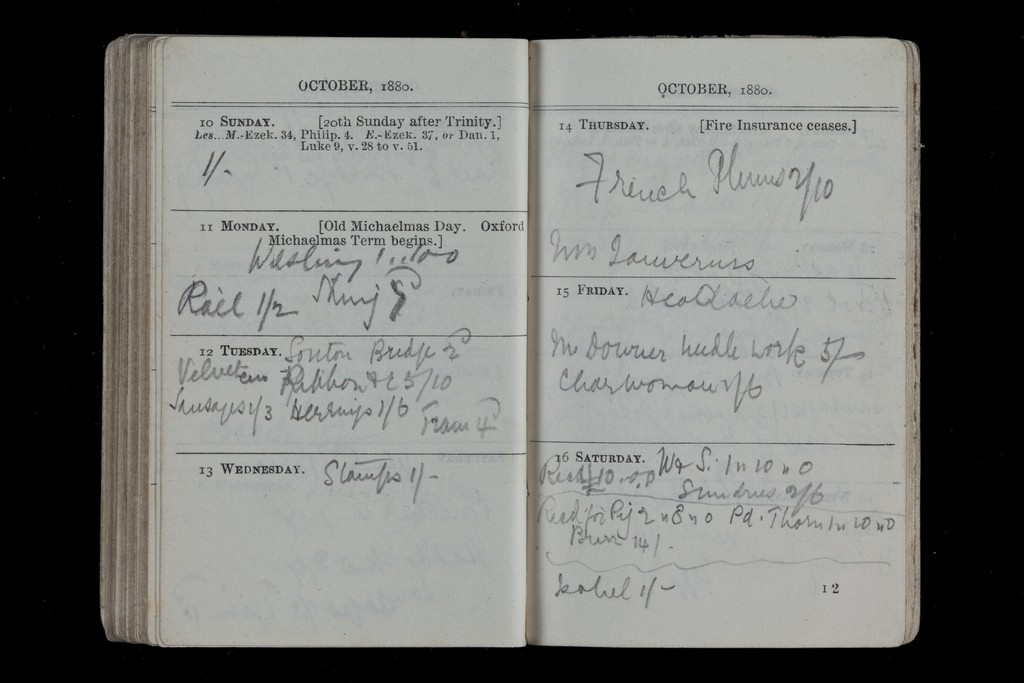 OCTOBER, 1880.
10 SUNDAY. [20th Sunday after Trinity.]
Les... M.-Ezek. 34, Philip. 4. E.-Ezek. 37, or Dan. 1,
Luke 9, v. 28 to v. 51.
1/-
11 MONDAY. [Old Michaelmas Day. Oxford
Michaelmas Term begins.]
Rail 1/2
12 TUESDAY. Bridge 2
Velveteen Ribbon &c 5/10
Sausages 1/3 Herrings 1/6 Tram 4
13 WEDNESDAY. Stamps 1/-
OCTOBER, 1880.
14 THURSDAY. [Fire Insurance ceases.]
French Plums 2/10
15 FRIDAY. Headache
Downer needle work 5/-
Charwoman 2/6
16 SATURDAY. W & S. 1 " 10 " 0
Recd £10.0.0
Sundries 2/6
Recd for Pig 2 " 8 " 0 Pd. Thorn 1 " 10 " 0
14/-
Isabel 1/-
12